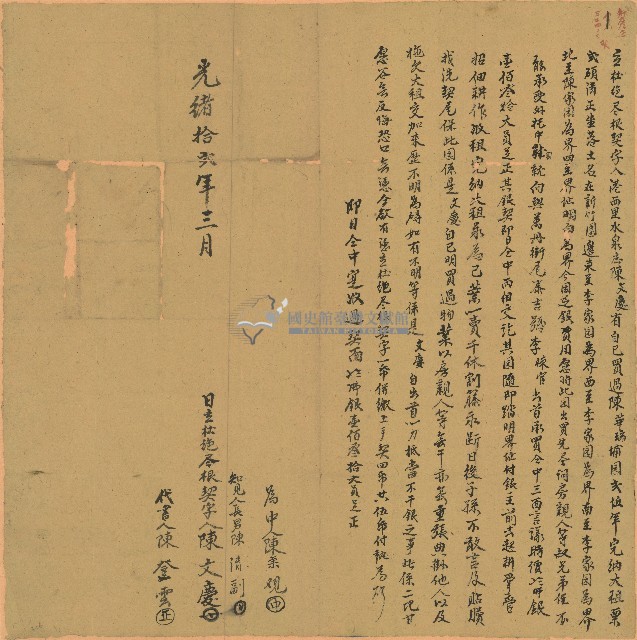 立杜絕尽根契字人港西里水泉庄陳文慶有自己買過陳華瑞埔園弍坵年完納大租粟
弍碩滿正坐落土名在新竹園邊東至李家園為界西至李家園為界南至李家園為界
北至陳家園為界四至界址明白為界今因乏銀費用愿將此園出賣先尽問房親人等叔兄弟侄不
能承受外托中就向與萬丹街尾李官出首承買仝中三面言議時價銀
壹佰叁拾大員足正其銀契即日仝中兩相交訖其園隨即踏明界址付銀主前去起耕掌管
招佃耕作收租完納大租永為己業一賣千休割藤永斷日後子孫不敢言及貼贖
找洗契尾保此園係是文慶自己明買過物業以房親人等無干亦無重張典掛他人以及
拖欠大租交加來歷不明為碍如有不明等係是文慶自出首一力抵當不干銀主之事此係二比甘
愿各無反悔恐口無憑今欲有憑立杜絕尽根契字一帋併繳上手契四帋共伍帋付執為炤
即日仝中寔收過契面銀壹佰叁拾大員足正
光緒拾弍年三月
為中人陳
知見人長男陳清
日立杜絕尽根契字人陳文慶
代書人陳登雲
國史館臺灣文獻館
TAIWAN HISTORICA